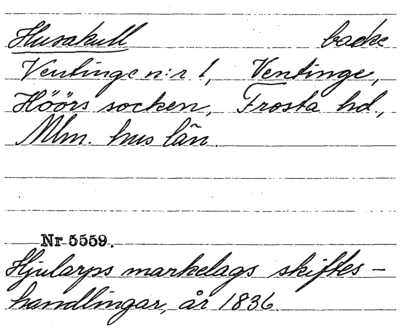 Husakull backe
Ventinge n:r 1, Ventinge,
Höörs socken, Frosta hd.,
Mlm. hus län.
Nr 5559.
Hjularps markelags skiftes-
handlingar, år 1836.